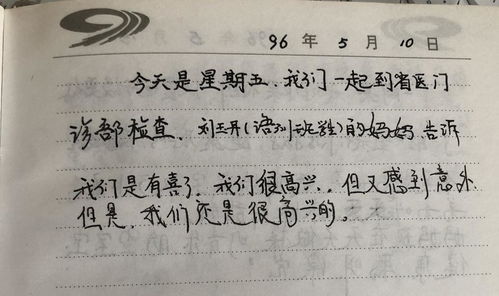 96 年 5 月 10 日
今天是星期五、我们一起到省医门
诊部检查、刘玉丹(语训班学生)的妈妈告诉
我们是有喜了、我们很高兴、但又感到意外
但是、我们还是很高兴的。